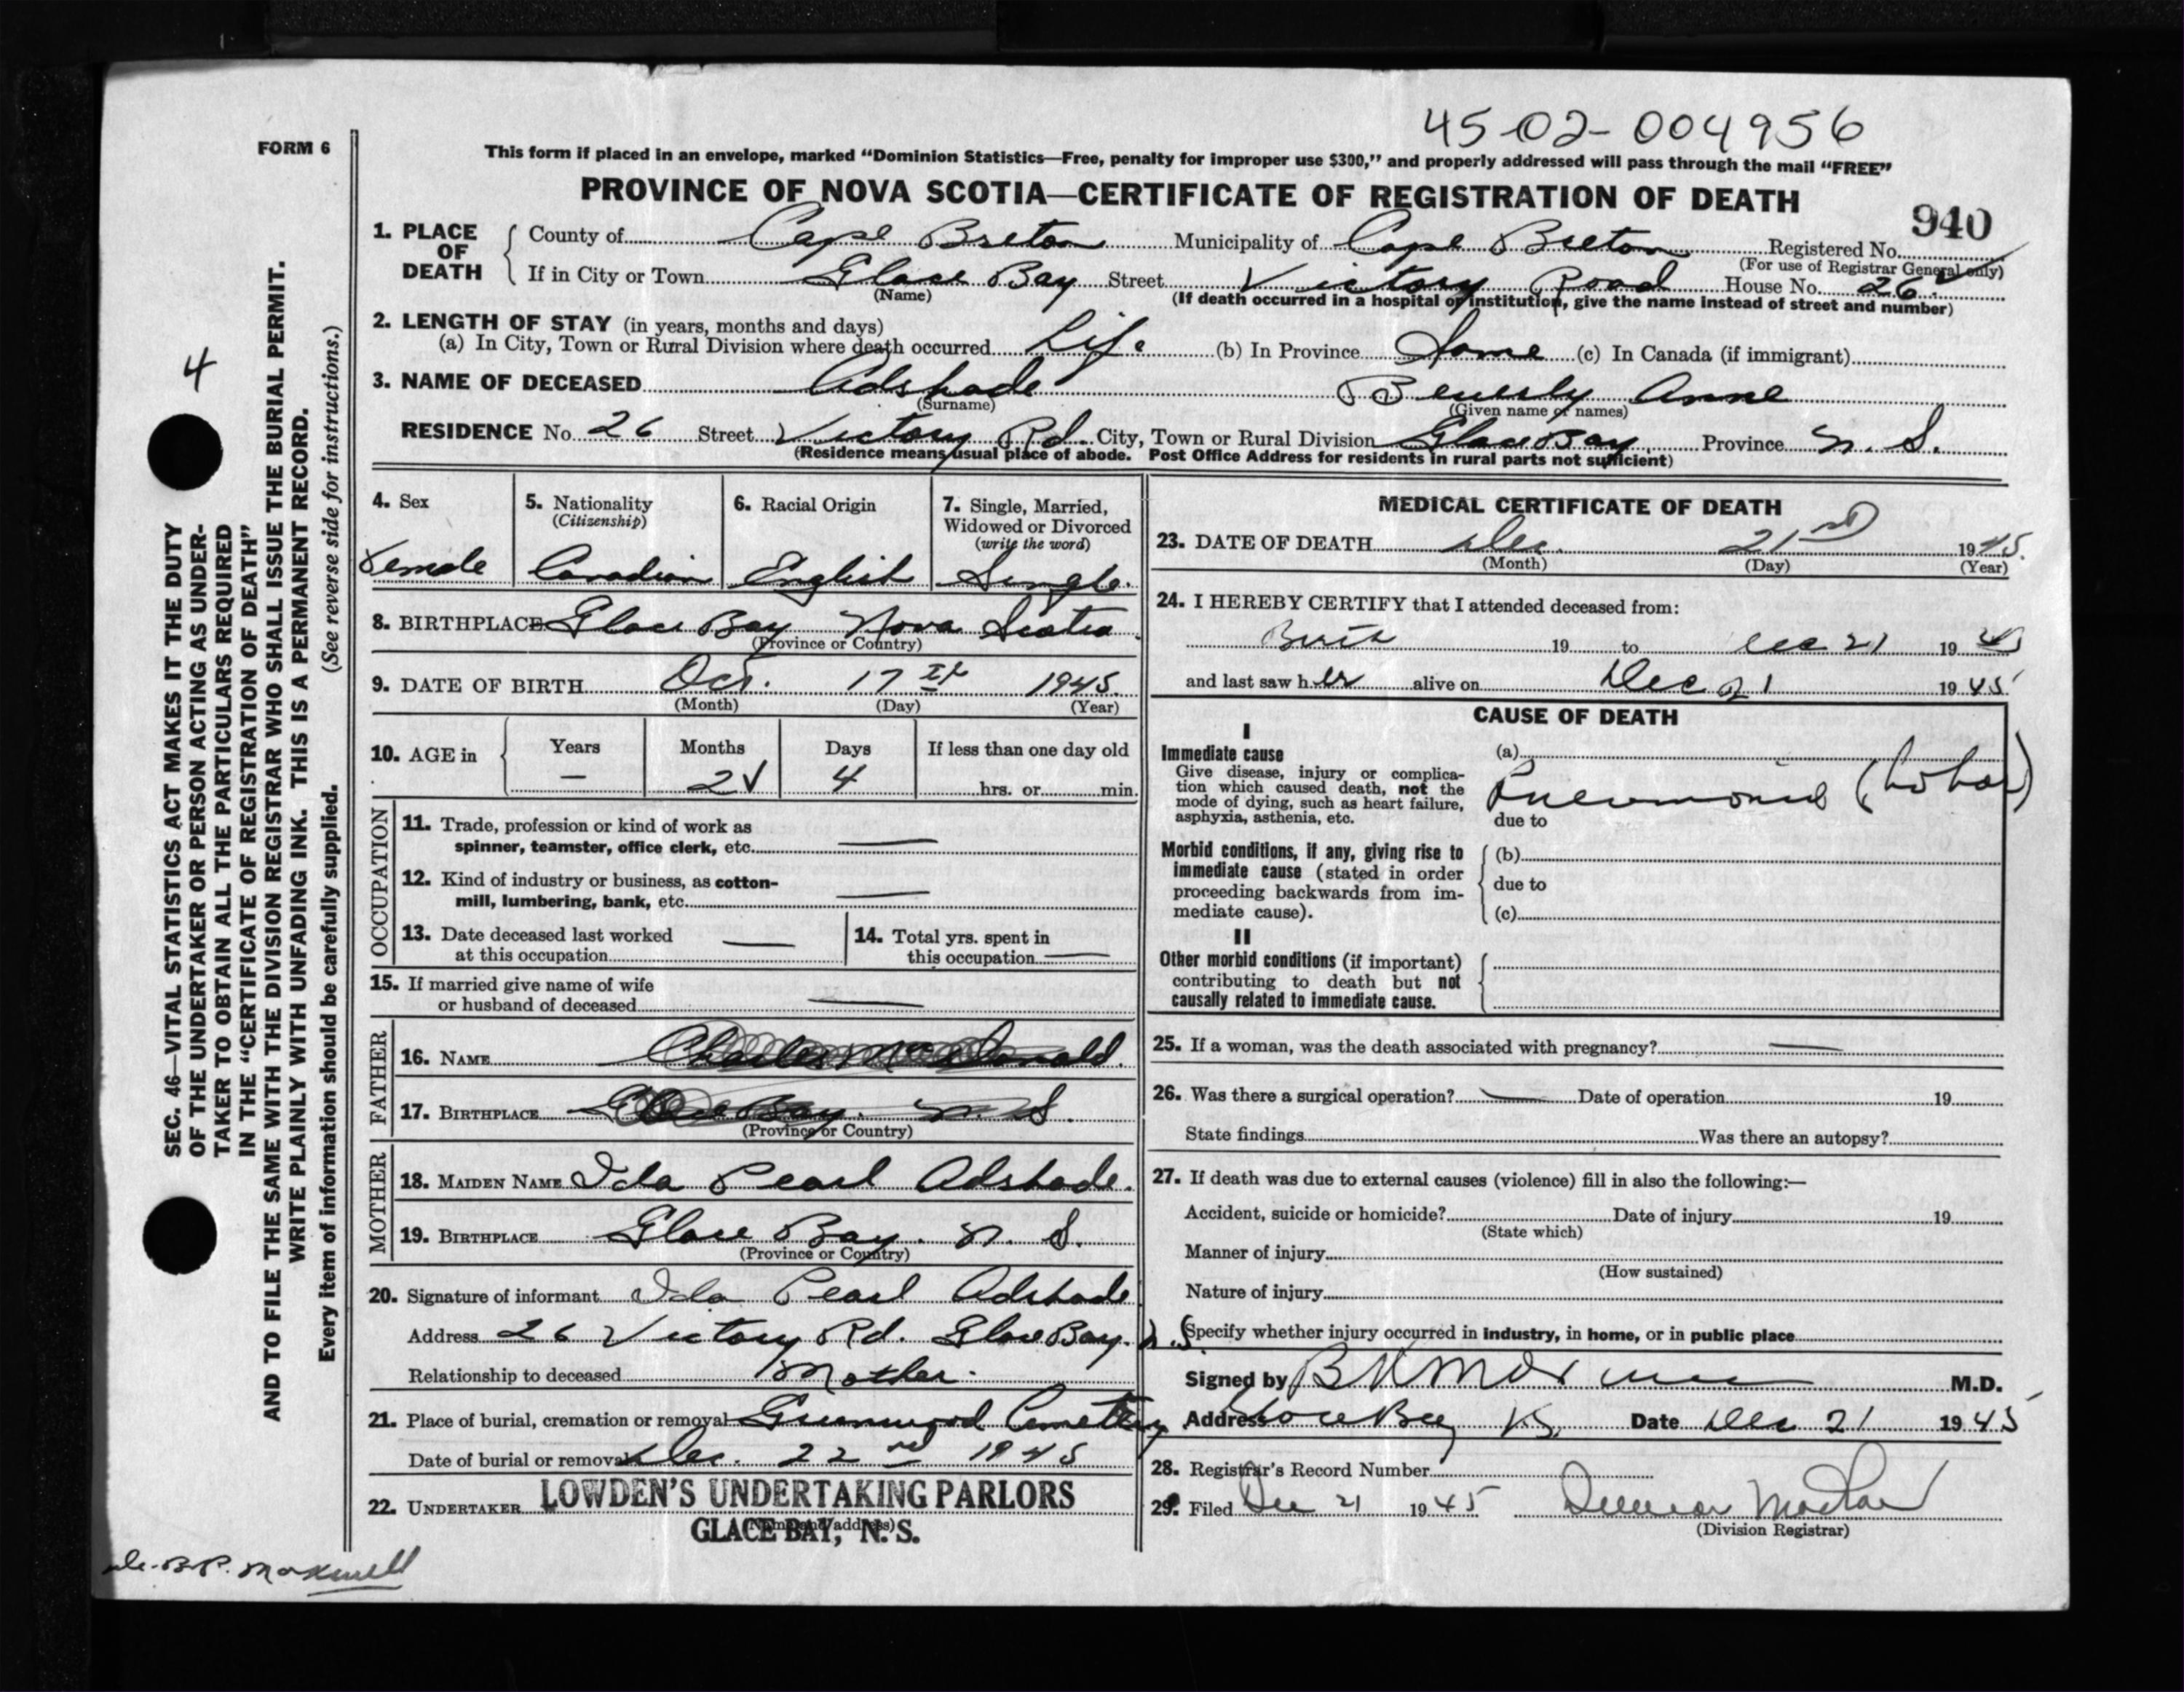 45-02-004956
FORM 6
This form if placed in an envelope, marked "Dominion Statistics—Free, penalty for improper use $300," and properly addressed will pass through the mail "FREE"
PROVINCE OF NOVA SCOTIA—CERTIFICATE OF REGISTRATION OF DEATH
940
1. PLACE OF DEATH County of Cape Breton Municipality of Cape Breton Registered No.
(For use of Registrar General only)
If in City or Town Glace Bay Street Victory Road House No. 26
(Name) (If death occurred in a hospital or institution, give the name instead of street and number)
2. LENGTH OF STAY (in years, months and days)
(a) In City, Town or Rural Division where death occurred Life (b) In Province Same (c) In Canada (if immigrant)
3. NAME OF DECEASED Adshade Beverly Anne
(Surname) (Given name or names)
RESIDENCE No. 26 Street Victory Rd. City, Town or Rural Division Glace Bay Province N. S.
(Residence means usual place of abode. Post Office Address for residents in rural parts not sufficient)
4. Sex
Female
5. Nationality
(Citizenship)
Canadian
6. Racial Origin
English
7. Single, Married,
Widowed or Divorced
(write the word)
Single.
8. BIRTHPLACE Glace Bay Nova Scotia
(Province or Country)
9. DATE OF BIRTH Oct. 17th 1945.
(Month) (Day) (Year)
10. AGE in Years Months Days If less than one day old
— 2 √ 4 hrs. or min.
OCCUPATION
11. Trade, profession or kind of work as
spinner, teamster, office clerk, etc. —
12. Kind of industry or business, as cotton-
mill, lumbering, bank, etc. —
13. Date deceased last worked
at this occupation —
14. Total yrs. spent in
this occupation —
15. If married give name of wife
or husband of deceased —
FATHER
16. NAME Charles MacDonald.
17. BIRTHPLACE Glace Bay. N. S.
(Province or Country)
MOTHER
18. MAIDEN NAME Ida Pearl Adshade.
19. BIRTHPLACE Glace Bay. N. S.
(Province or Country)
20. Signature of informant Ida Pearl Adshade
Address 26 Victory Rd. Glace Bay. N.S.
Relationship to deceased Mother.
21. Place of burial, cremation or removal Greenwood Cemetery
Date of burial or removal Dec. 22nd 1945
22. UNDERTAKER LOWDEN'S UNDERTAKING PARLORS
(Name and address)
GLACE BAY, N. S.
MEDICAL CERTIFICATE OF DEATH
23. DATE OF DEATH Dec. 21st 1945.
(Month) (Day) (Year)
24. I HEREBY CERTIFY that I attended deceased from:
Birth 19 to Dec 21 19 45
and last saw her alive on Dec 21 19 45
CAUSE OF DEATH
I
Immediate cause
Give disease, injury or complica-
tion which caused death, not the
mode of dying, such as heart failure,
asphyxia, asthenia, etc.
(a)
Pneumonia (Lobar)
due to
Morbid conditions, if any, giving rise to
immediate cause (stated in order
proceeding backwards from im-
mediate cause).
(b)
due to
(c)
II
Other morbid conditions (if important)
contributing to death but not
causally related to immediate cause.
25. If a woman, was the death associated with pregnancy? —
26. Was there a surgical operation? — Date of operation 19
State findings Was there an autopsy?
27. If death was due to external causes (violence) fill in also the following:—
Accident, suicide or homicide? Date of injury 19
(State which)
Manner of injury
(How sustained)
Nature of injury
Specify whether injury occurred in industry, in home, or in public place
Signed by M.D.
Address Glace Bay NS Date Dec 21 19 45
28. Registrar's Record Number
29. Filed Dec 21 19 45
(Division Registrar)
SEC. 46—VITAL STATISTICS ACT MAKES IT THE DUTY
OF THE UNDERTAKER OR PERSON ACTING AS UNDER-
TAKER TO OBTAIN ALL THE PARTICULARS REQUIRED
IN THE "CERTIFICATE OF REGISTRATION OF DEATH"
AND TO FILE THE SAME WITH THE DIVISION REGISTRAR WHO SHALL ISSUE THE BURIAL PERMIT.
WRITE PLAINLY WITH UNFADING INK. THIS IS A PERMANENT RECORD.
Every item of information should be carefully supplied. (See reverse side for instructions.)
4
Maxwell